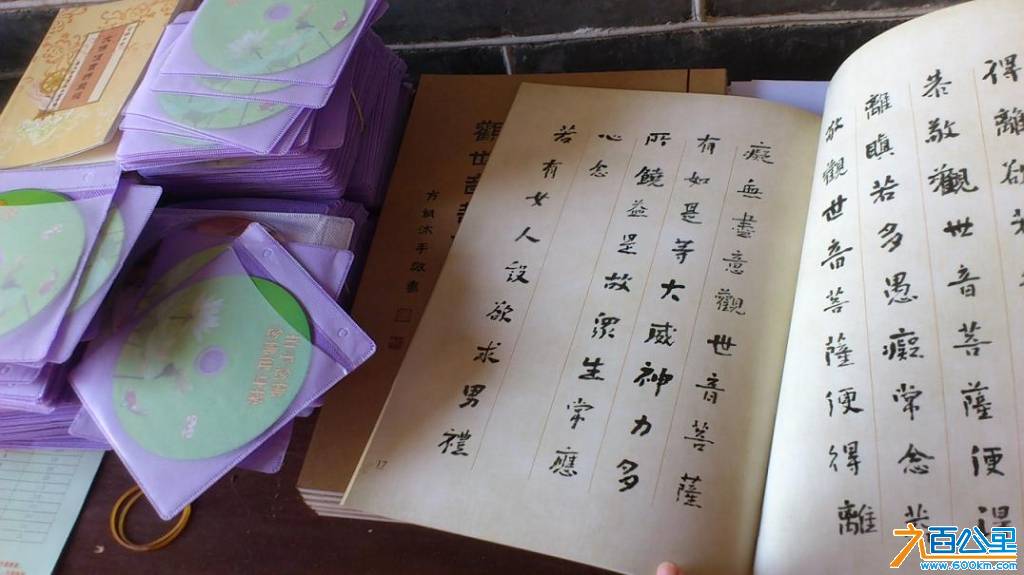 得離欲若
恭敬觀世音菩薩便得
離瞋若多愚癡常念恭
敬觀世音菩薩便得離
癡無盡意觀世音菩薩
有如是等大威神力多
所饒益是故眾生常應
心念
若有女人設欲求男禮
17
觀世音
沐手敬書
六百公里
www.600km.com